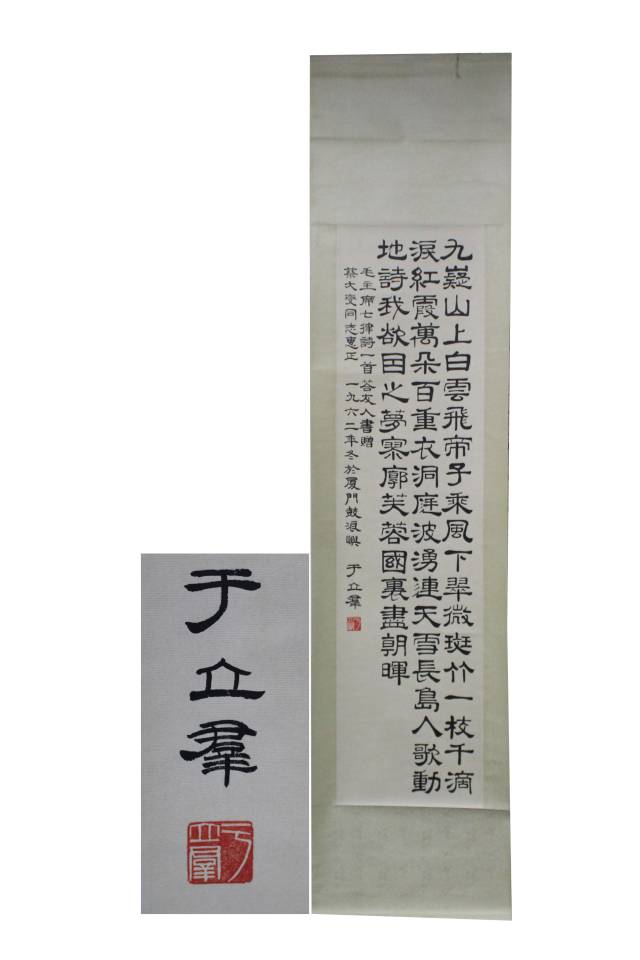 九嶷山上白雲飛帝子乘風下翠微斑竹一枝千滴
淚紅霞萬朵百重衣洞庭波湧連天雪長島人歌動
地詩我欲因之夢寥廓芙蓉國裏盡朝暉
毛主席七律詩一首 答友人書贈
蔡大同志惠正 一九六二年冬於厦門鼓浪嶼 于立羣
于立羣
于立羣